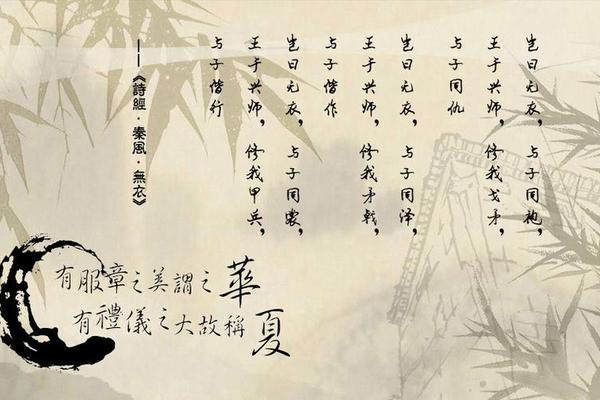 岂曰无衣，与子同袍，
王于兴师，修我戈矛，
与子同仇
岂曰无衣，与子同泽，
王于兴师，修我矛戟，
与子偕作
岂曰无衣，与子同裳，
王于兴师，修我甲兵，
与子偕行
——《詩經·秦風·無衣》
有服章之美謂之華
有禮儀之大故稱夏